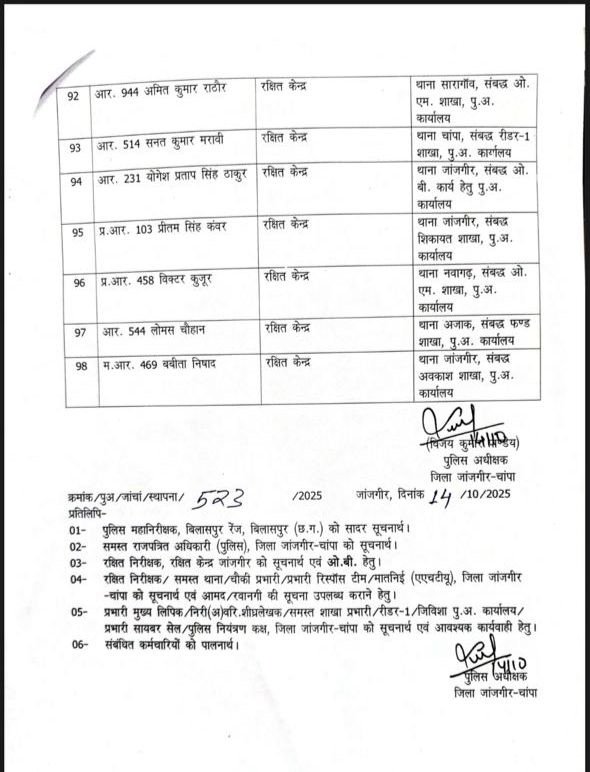 92 आर. 944 अमित कुमार राठौर रक्षित केन्द्र थाना सारागॉव, संबद्ध ओ.
एम. शाखा, पु.अ.
कार्यालय
93 आर. 514 सनत कुमार मरावी रक्षित केन्द्र थाना चांपा, संबद्ध रीडर-1
शाखा, पु.अ. कार्यालय
94 आर. 231 योगेश प्रताप सिंह ठाकुर रक्षित केन्द्र थाना जांजगीर, संबद्ध ओ.
बी. कार्य हेतु पु.अ.
कार्यालय
95 प्र.आर. 103 प्रीतम सिंह कंवर रक्षित केन्द्र थाना जांजगीर, संबद्ध
शिकायत शाखा, पु.अ.
कार्यालय
96 प्र.आर. 458 विक्टर कुजूर रक्षित केन्द्र थाना नवागढ़, संबद्ध ओ.
एम. शाखा, पु.अ.
कार्यालय
97 आर. 544 लोमस चौहान रक्षित केन्द्र थाना अजाक, संबद्ध फण्ड
शाखा, पु.अ. कार्यालय
98 म.आर. 469 बबीता निषाद रक्षित केन्द्र थाना जांजगीर, संबद्ध
अवकाश शाखा, पु.अ.
कार्यालय
(विजय कुमार पाण्डेय)
पुलिस अधीक्षक
जिला जांजगीर-चांपा
क्रमांक/पुअ/जांचा/स्थापना/ 523 /2025 जांजगीर, दिनांक 14 /10/2025
प्रतिलिपि-
01- पुलिस महानिरीक्षक, बिलासपुर रेंज, बिलासपुर (छ.ग.) को सादर सूचनार्थ।
02- समस्त राजपत्रित अधिकारी (पुलिस), जिला जांजगीर-चांपा को सूचनार्थ।
03- रक्षित निरीक्षक, रक्षित केन्द्र जांजगीर को सूचनार्थ एवं ओ.बी. हेतु।
04- रक्षित निरीक्षक/ समस्त थाना/चौकी प्रभारी/प्रभारी रिस्पॉस टीम/मातनिई (एएचटीयू), जिला जांजगीर
-चांपा को सूचनार्थ एवं आमद/रवानगी की सूचना उपलब्ध कराने हेतु।
05- प्रभारी मुख्य लिपिक/निरी(अ)वरि.शीघ्रलेखक/समस्त शाखा प्रभारी/रीडर-1/जिविशा पु.अ. कार्यालय/
प्रभारी सायबर सेल/पुलिस नियंत्रण कक्ष, जिला जांजगीर-चांपा को सूचनार्थ एवं आवश्यक कार्यवाही हेतु।
06- संबंधित कर्मचारियों को पालनार्थ।
14/10
पुलिस अधीक्षक
जिला जांजगीर-चांपा